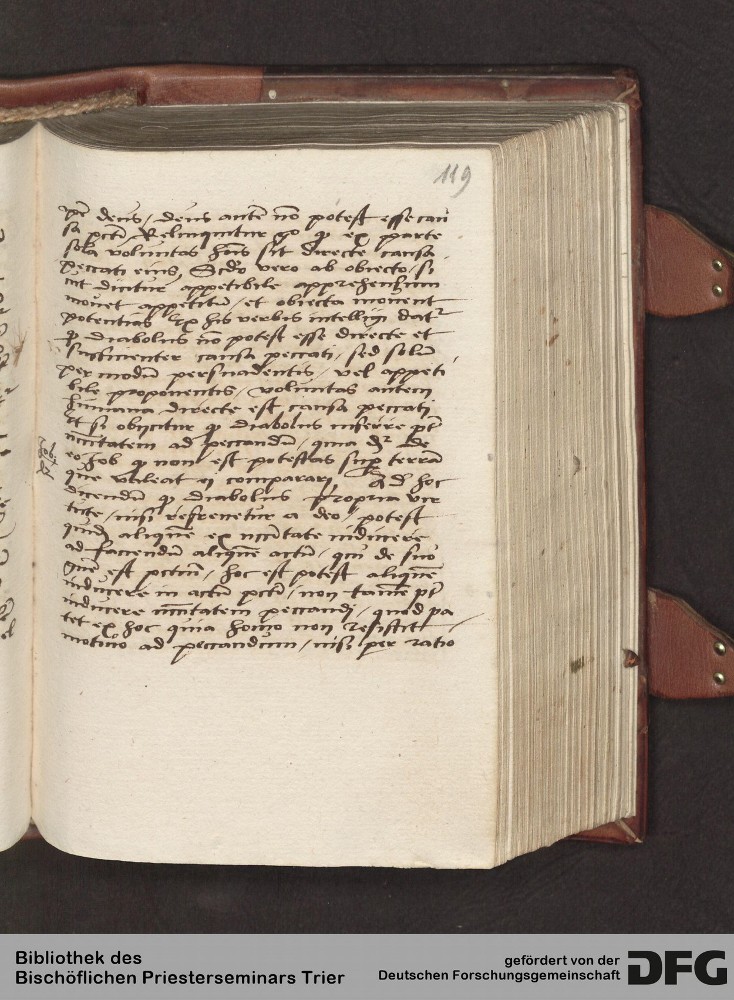 119
deus / deus autē nō potest esse cau
sa pcti Relinquitur go q ex parte
sola voluntas hois sit directe causa
peccati eius, Scdo vero ab obiecto / si
cut dicitur appetibile apprehensum
mouet appetitū / et obiecta mouent
potentias Ex his verbis intelligi datr
q diabolus nō potest esse directe et
causa peccati / sed solū
per modū persuadentis / vel appeti
bile proponentis / voluntas autem
humana directe est causa peccati
Et si obijcitur q diabolus inferre pt
ncccitatem ad peccandū / quia dr de
eo Job q non est potestas sup terrā
que valeat ei comparari Ad hoc
dicendum q diabolus propria vir
tute / nisi refrenetur a deo / potest
aliquē ex nccitate inducere
ad faciendū aliquē actū / qui de suo
est pctm / hoc est potest aliquē
inducere in actū pcti / non tamē pt
inducere nccitatem peccandi / quod pa
tet ex hoc quia homo non resistit
motiuo ad peccandum / nisi per ratio
Bibliothek des
Bischöflichen Priesterseminars Trier
gefördert von der
Deutschen Forschungsgemeinschaft
DFG